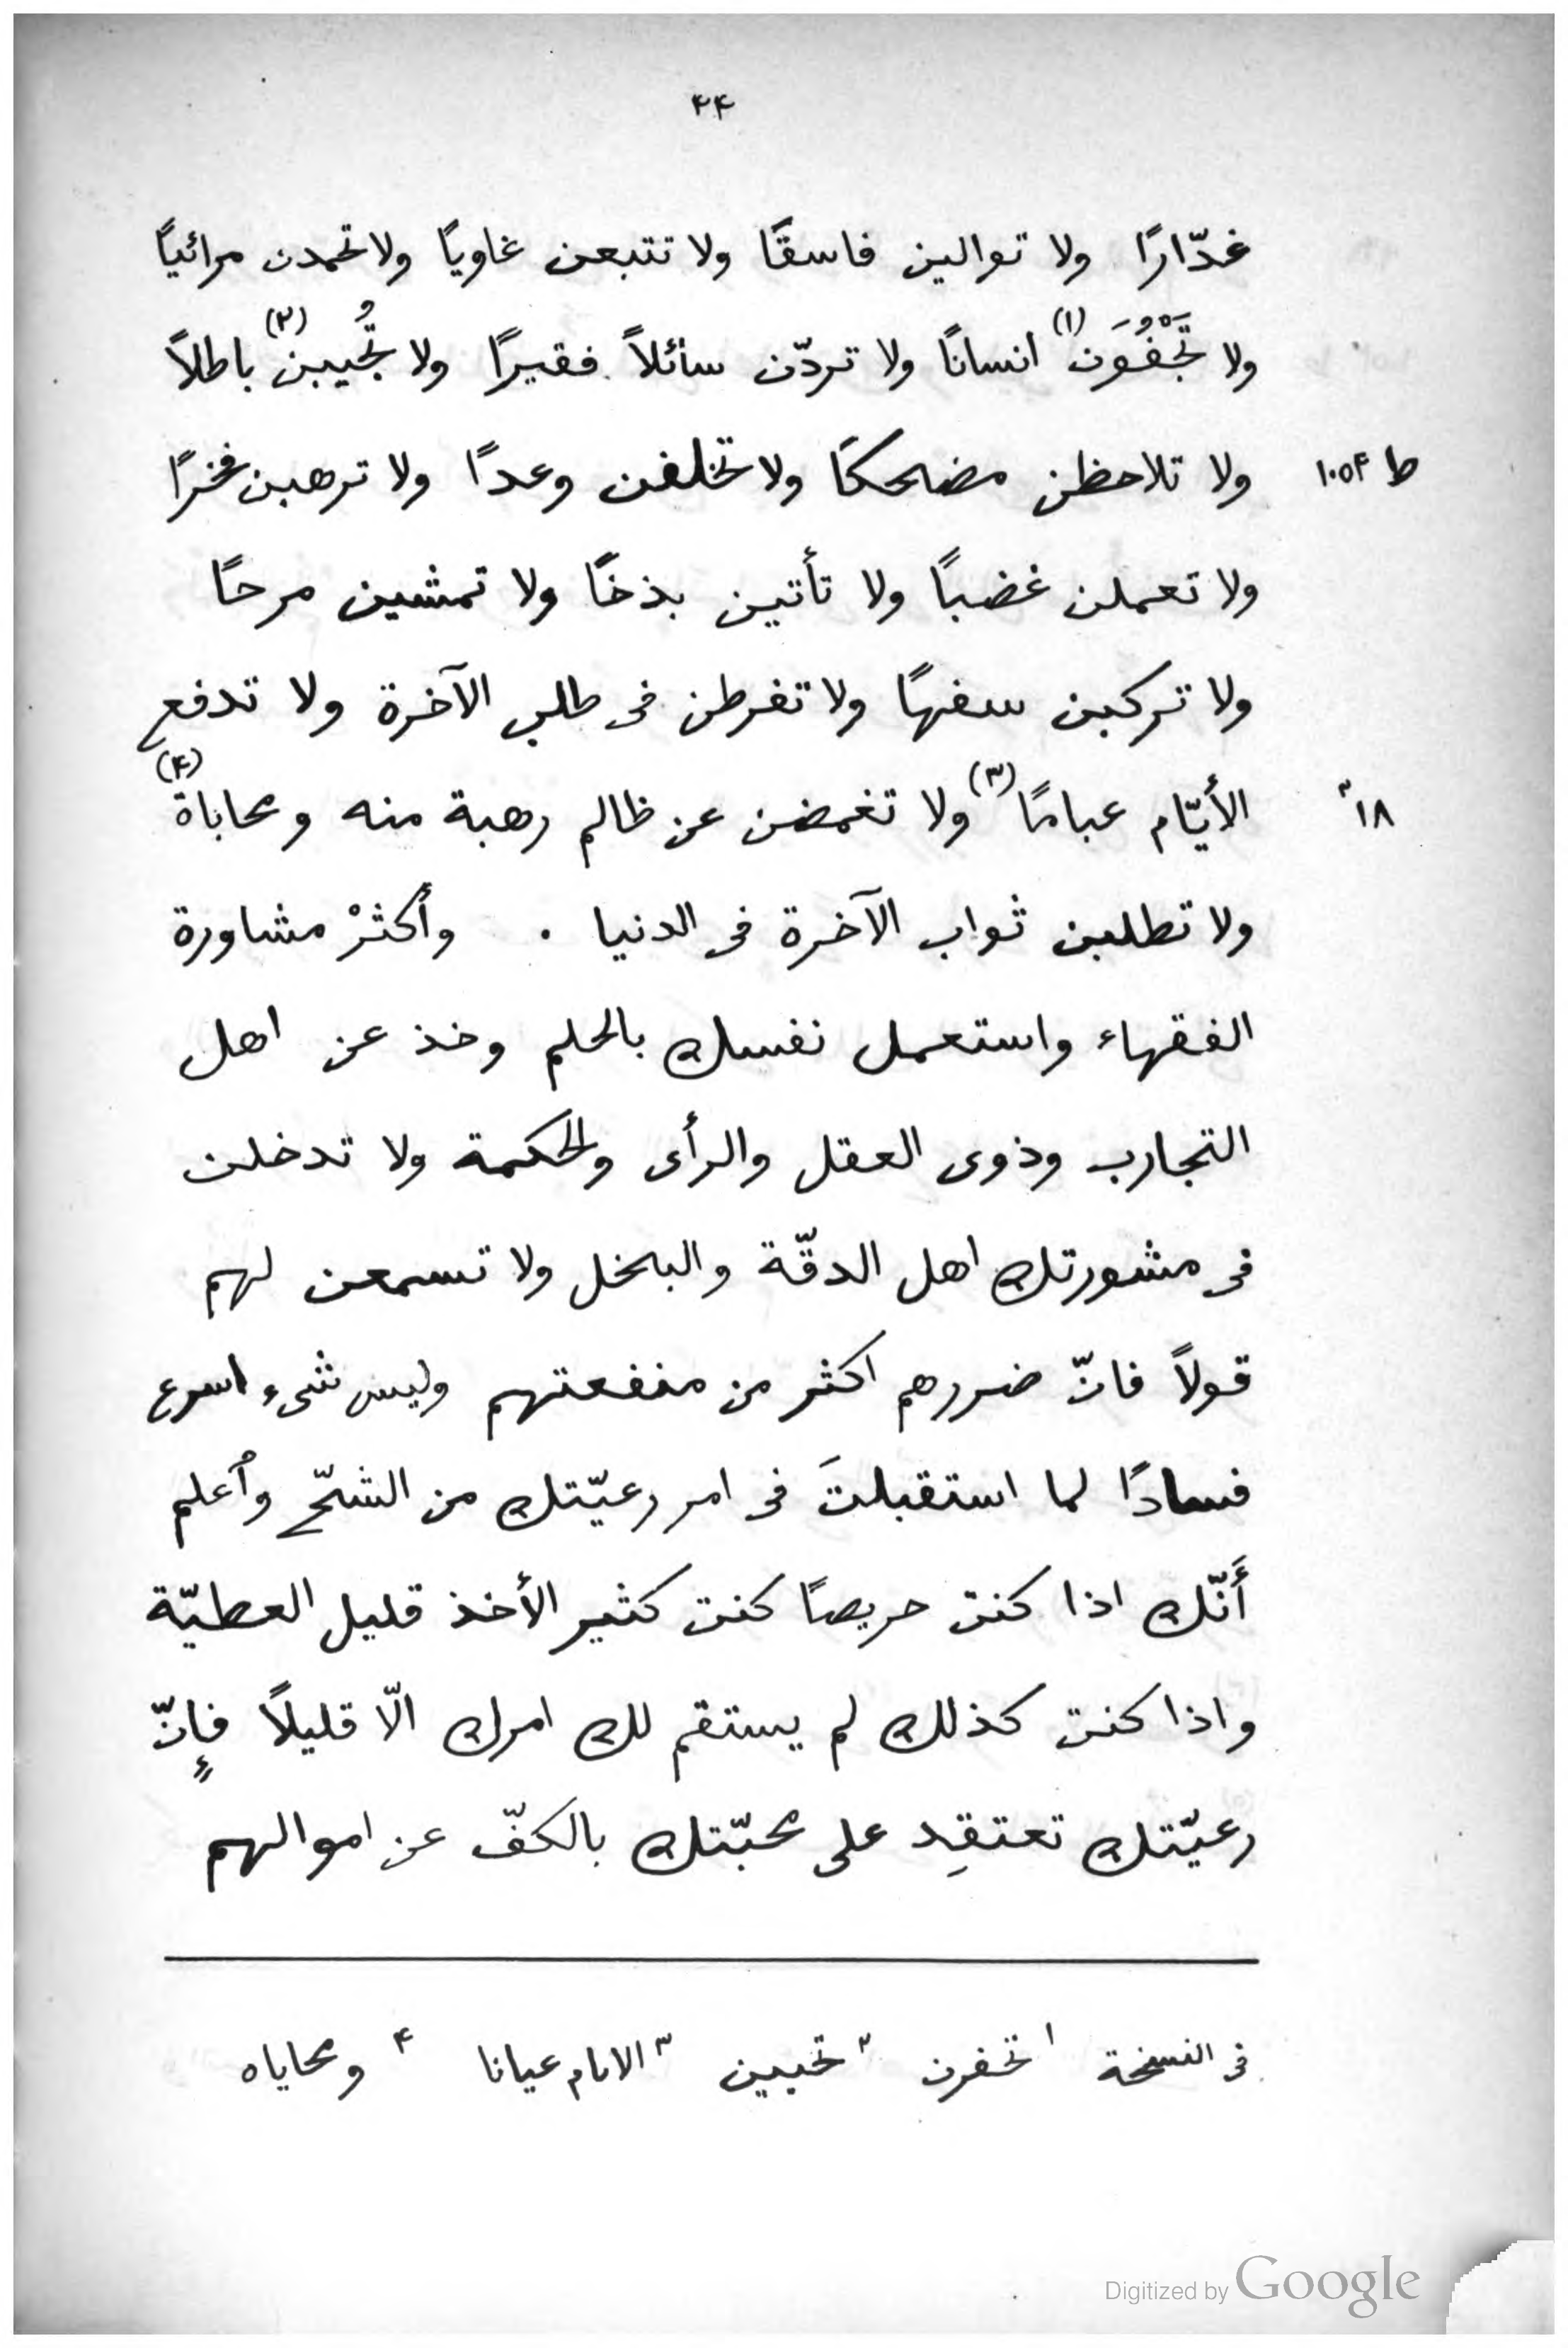 ٣٤
غدّارًا ولا توالين فاسقًا ولا تتبعن غاويًا ولا تحمدن مرائيًا
ولا تَجْفُوَن(١) انسانًا ولا تردّن سائلاً فقيرًا ولا تُجيبن(٢) باطلاً
ط ١٠٥٤ ولا تلاحظن مضحكًا ولا تخلفن وعدًا ولا ترهبن فخرًا
ولا تعملن غضبًا ولا تأتين بذخًا ولا تمشين مرحًا
ولا تركبن سفهًا ولا تفرطن فى طلب الآخرة ولا تدفع
١٨ ّ الأيّام عبامًا(٣) ولا تغمضن عن ظالم رهبة منه ومحاباة(٤)
ولا تطلبن ثواب الآخرة فى الدنيا . وأكثرْ مشاورة
الفقهاء واستعمل نفسك بالحلم وخذ عن اهل
التجارب وذوى العقل والرأى والحكمة ولا تدخلن
فى مشورتك اهل الدقّة والبخل ولا تسمعن لهم
قولاً فانّ ضررهم اكثر من منفعتهم وليس شىء اسرع
فسادًا لما استقبلتَ فى امر رعيّتك من الشحّ وٱعلم
أَنّك اذا كنت حريصًا كنت كثير الأخذ قليل العطيّة
واذا كنت كذلك لم يستقم لك امرك الّا قليلاً فإنّ
رعيّتك تعتقِد على محبّتك بالكفّ عن اموالهم
فى النسخة ١ تخفرن ٢ تحبين ٣ الامام عيانا ٤ ومحاياه
Digitized by Google